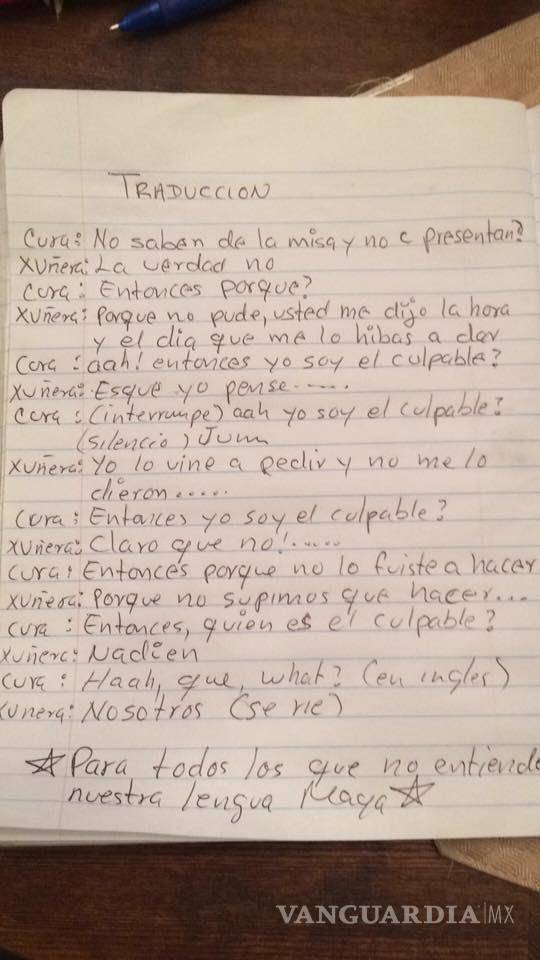 TRADUCCION
Cura: No saben de la misa y no c presentan?
XUÑera: La verdad no
Cura: Entonces porque?
XUÑera: Porque no pude, usted me dijo la hora
y el dia que me lo hibas a dar
Cura: aah! entonces yo soy el culpable?
XUÑera: Esque yo pense......
Cura: (interrumpe) aah yo soy el culpable?
(silencio) Jumm
XUÑera: Yo lo vine a pedir y no me lo
dieron.....
Cura: Entonces yo soy el culpable?
XUÑera: Claro que no!.....
Cura: Entonces porque no lo fuiste a hacer
XUÑera: Porque no supimos que hacer...
Cura: Entonces, quien es el culpable?
XUÑera: Nadien
Cura: Haah, que, what? (en ingles)
XUÑera: Nosotros (se rie)
☆Para todos los que no entiende
nuestra lengua Maya☆
VANGUARDIA|MX